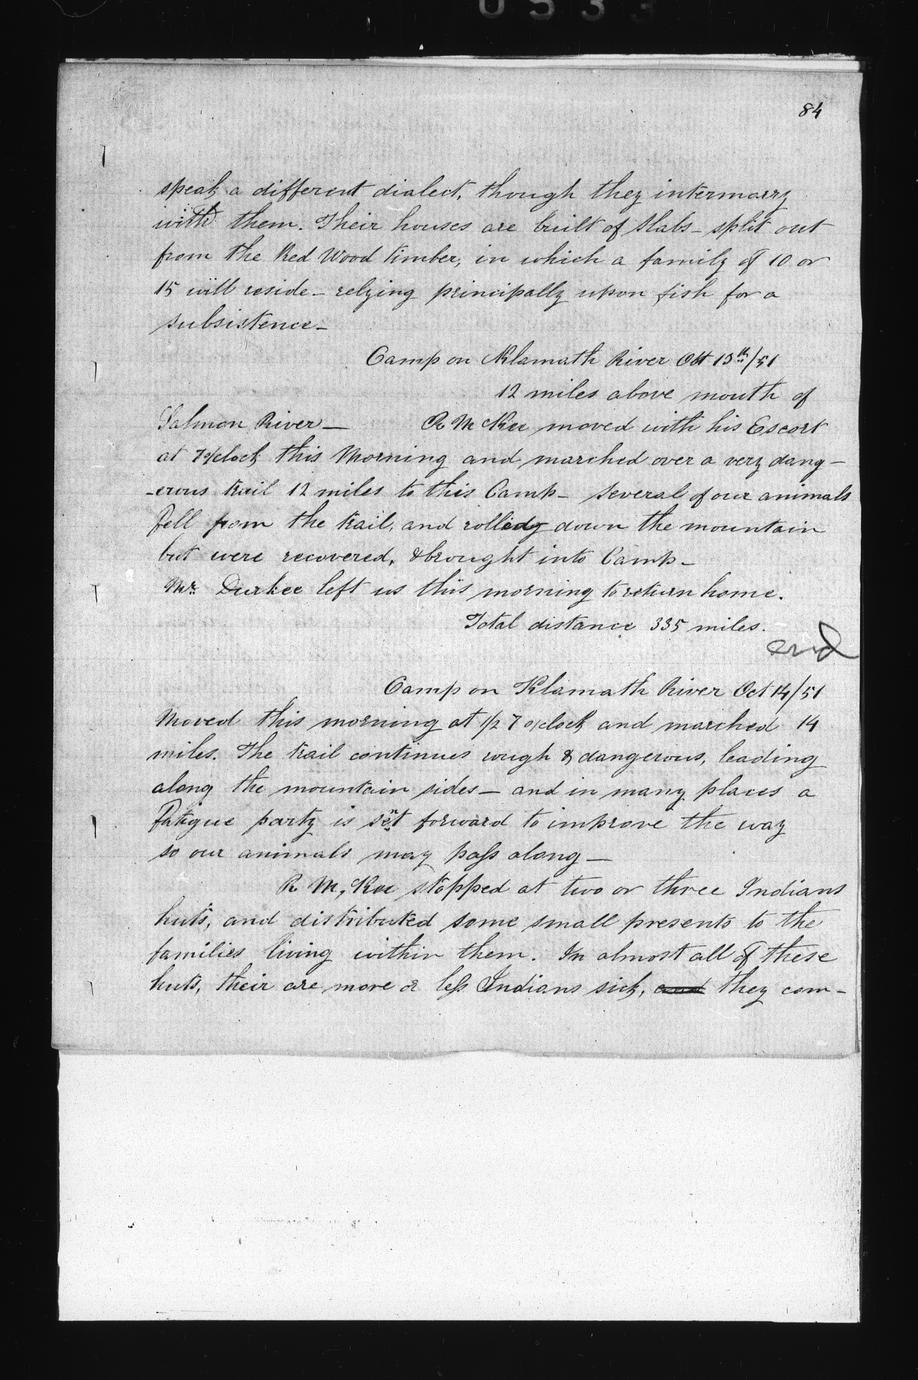 0533
84
speak a different dialect, though they intermarry
with them. Their houses are built of slabs - split out
from the Red Wood timber, in which a family of 10 or
15 will reside - relying principally upon fish for a
subsistence -
Camp on Klamath River Oct 13th/51
12 miles above mouth of
Salmon River - R McKee moved with his Escort
at 7 oclock this Morning and marched over a very dang-
-erous trail 12 miles to this Camp - several of our animals
fell from the trail, and rolled down the mountain
but were recovered, & brought into Camp -
Mr. Durkee left us this morning to return home.
Total distance 335 miles.
end
Camp on Klamath River Oct 14/51
Moved this morning at 1/2 7 oclock and marched 14
miles. The trail continues rough & dangerous, leading
along the mountain sides - and in many places a
fatigue party is sent forward to improve the way
so our animals may pass along -
R McKee stopped at two or three Indians
huts, and distributed some small presents to the
families living within them. In almost all of these
huts, their are more or less Indians sick, and they com-